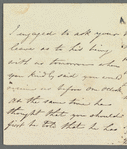 I engaged to ask your
leave as to his being
with us tomorrow when
you kindly said you would
receive us before
at the same time he
thought that you should
first be told that he has